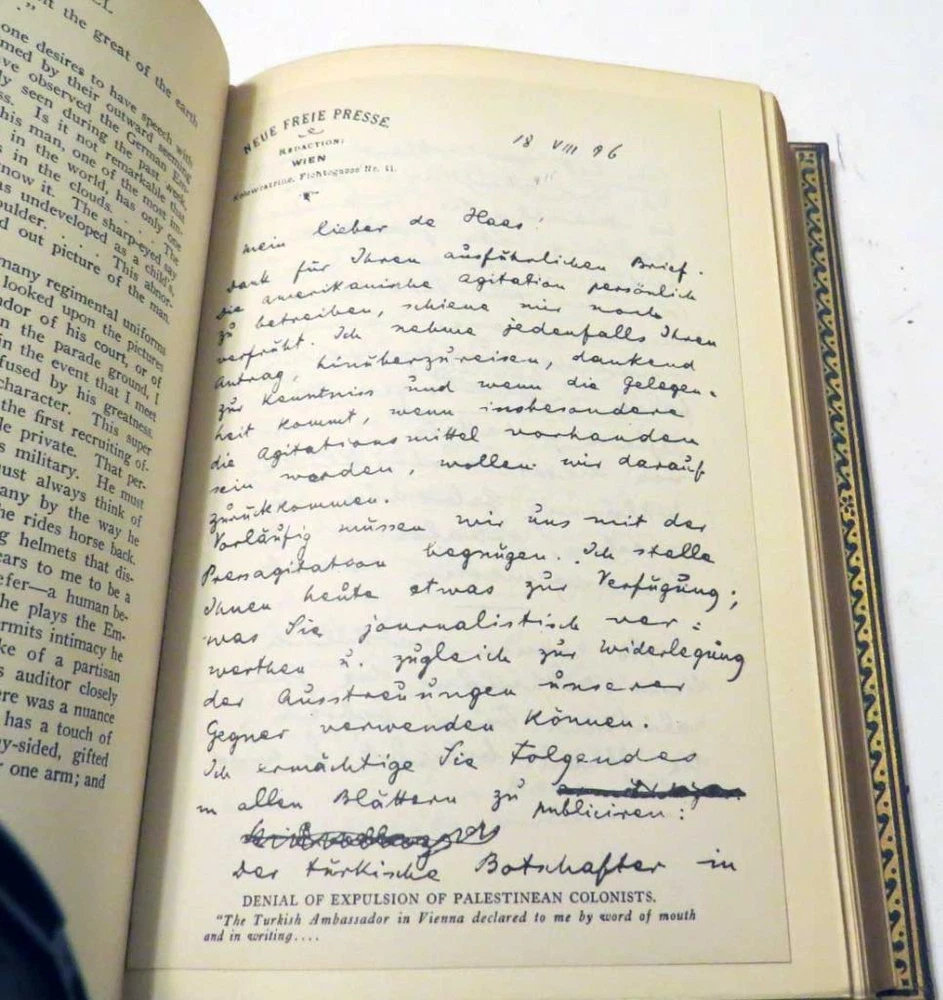 the great of the earth
."
one desires to have speech with
med by their outward seeming
ve observed the German Em-
ly seen during the past week,
ss. Is it not remarkable that
his man, one of the most im-
in the world, has only one
s in the clouds. . . . The
now it. The sharp-eyed say
as undeveloped as a child's,
oulder. . . . This abnor-
d out picture of the man.
many regimental uniforms
looked upon the pictures
ndor of his court, or of
n the parade ground, I
in the event that I meet
fused by his greatness.
character. This super
the first recruiting of-
le private. That per-
s military. He must
ust always think of
any by the way he
he rides horse back.
g helmets that dis-
ears to me to be a
efer—a human be-
he plays the Em-
ermits intimacy he
ke of a partisan
s auditor closely
ere was a nuance
has a touch of
y-sided, gifted
r one arm; and
NEUE FREIE PRESSE.
REDACTION:
WIEN
Kolowratring, Fichtegasse Nr. 11.
18 VIII 96
mein lieber de Haas!
Dank für Ihren ausführlichen Brief.
Die amerikanische Agitation persönlich
zu betreiben, schiene mir noch
verfrüht. Ich nehme jedenfalls Ihren
Antrag, hinüberzureisen, dankend
zur Kenntniss und wenn die Gelegen-
heit kommt, wenn insbesondere
die Agitationsmittel vorhanden
sein werden, wollen wir darauf
zurückkommen.
Vorläufig müssen wir uns mit der
Pressagitation begnügen. Ich stelle
Ihnen heute etwas zur Verfügung,
was Sie journalistisch ver=
werthen u. zugleich zur Widerlegung
der Ausstreuungen unserer
Gegner verwenden können.
Ich ermächtige Sie Folgendes
in allen Blättern zu
publiciren:
Der türkische Botschafter in
DENIAL OF EXPULSION OF PALESTINEAN COLONISTS.
"The Turkish Ambassador in Vienna declared to me by word of mouth
and in writing....